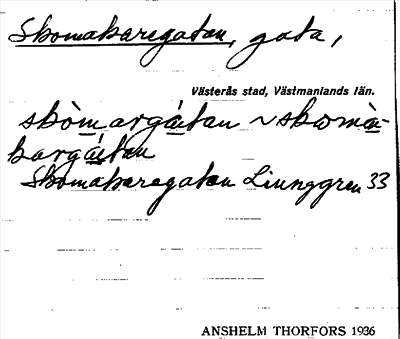 Skomakaregatan, gata,
Västerås stad, Västmanlands län.
skòmargá̤tan ~ skomà̤-
kargá̤tan
Skomakaregatan Ljunggren 33
ANSHELM THORFORS 1936